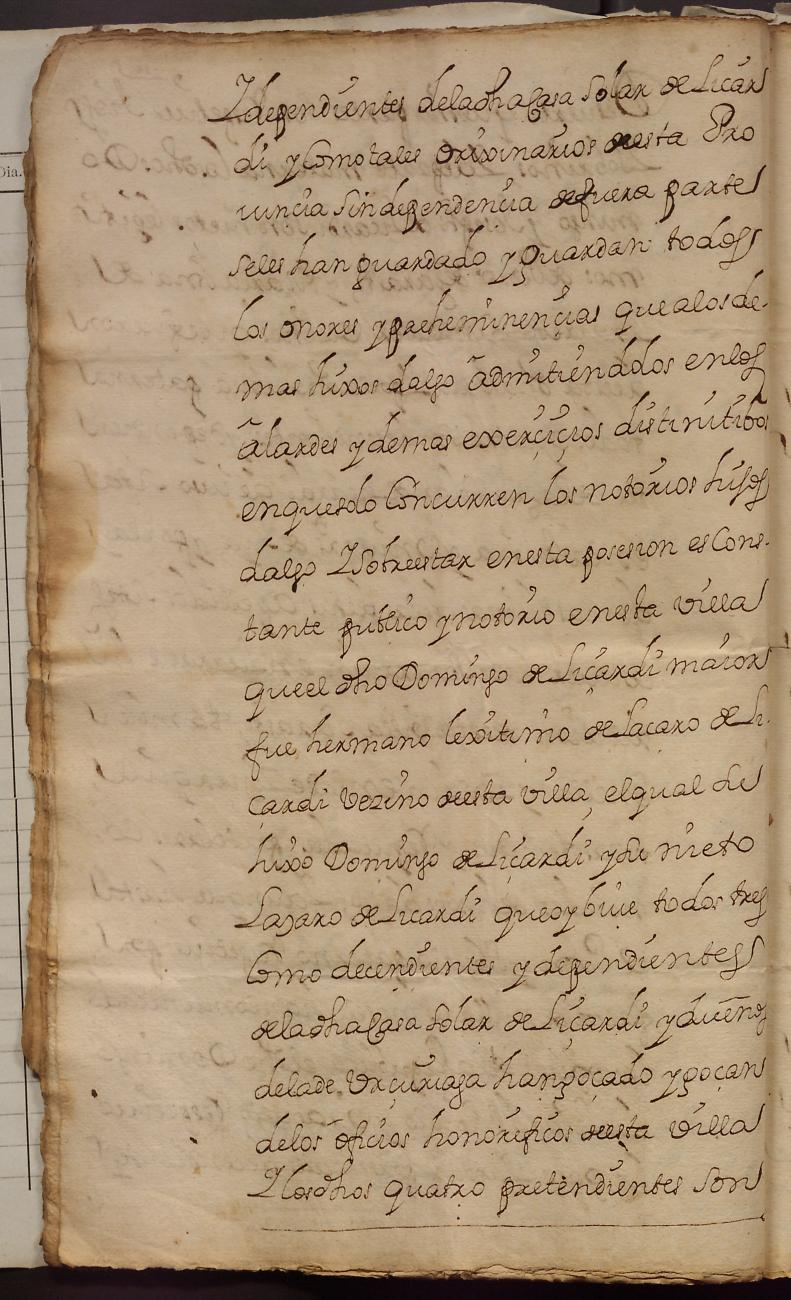 Y dependientes de la dha Casa solar de Licar
di y Como tales orixinarios de esta Pro
vincia sin dependencia de fuera parte
se les han guardado y guardan todos
los onores y preheminencias que a los de-
mas hixos dalgo admitiendolos en los
alardes y demas exerçiçios distinitibos
en que solo Concurren los notorios hijos
dalgo Y sobre estar en esta posesion es Cons-
tante publico y notorio en esta villa
que el dho Domingo de Liçardi maior
fue hermano lexitimo de Lacaro de Li-
çardi Vezino de esta villa, el qual su
hixo Domingo de Liçardi y su nieto
Laçaro de Licardi que oy biue todos tres
Como decendientes y dependientes
de la dha Casa solar de Liçardi y dueños
de la de Urçuriaga han goçado y goçan
de los oficios honorificos de esta villa
Y los dhos quatro pretendientes son
Dia.